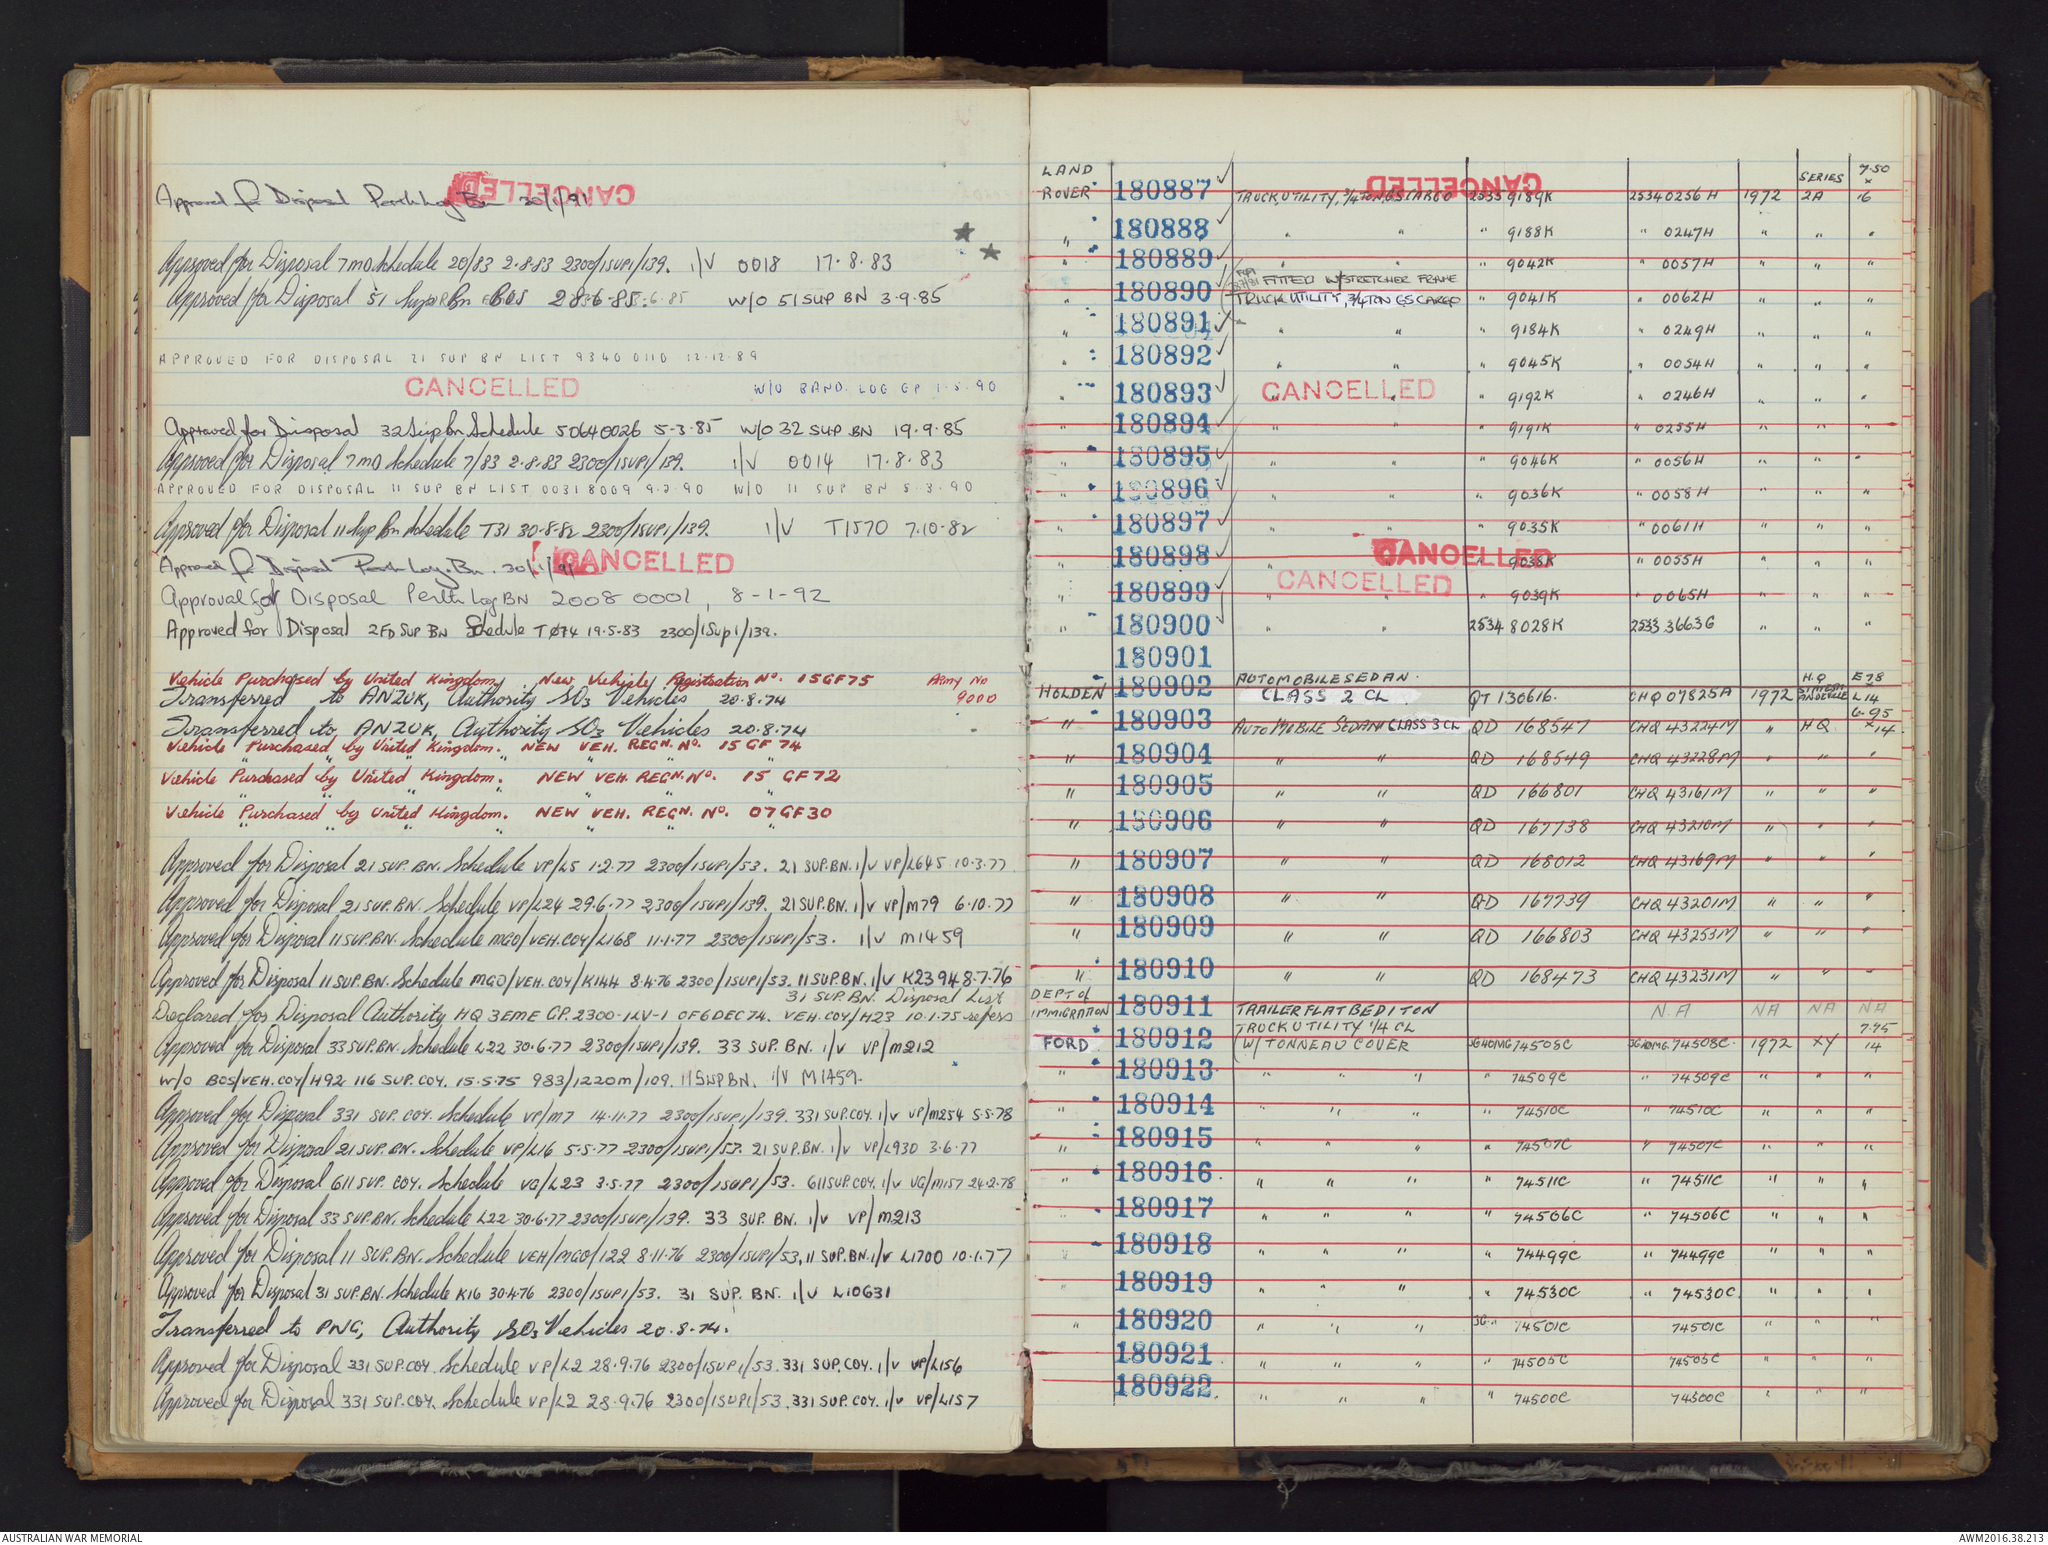 CANCELLED
Approved for Disposal Perth Log Bn 30/1/91
Approved for Disposal 7 MD Schedule 20/83 2.8.83 2300/1SUP1/139. I/V 0018 17.8.83
Approved for Disposal 51 Sup Bn BOS W/O 51 SUP BN 3.9.85
APPROVED FOR DISPOSAL 21 SUP BN LIST 9340 0110 12.12.89
CANCELLED
W/O BAND. LOG GP 1.5.90
Approved for Disposal 32 Sup Bn Schedule 50640026 5-3-85 W/O 32 SUP BN 19.9.85
Approved for Disposal 7 MD Schedule 7/83 2.8.83 2300/1SUP1/139. I/V 0014 17.8.83
APPROVED FOR DISPOSAL 11 SUP BN LIST 00318009 9.2.90 W/O 11 SUP BN 5.3.90
Approved for Disposal 11 Sup Bn Schedule T31 30.8.82 2300/1SUP1/139. I/V T1570 7.10.82
CANCELLED
Approved for Disposal Perth Log Bn. 30/1/91
Approval for Disposal Perth Log BN 2008 0001, 8-1-92
Approved for Disposal 2 FD SUP BN Schedule TØ74 19.5.83 2300/1Sup1/139.
Vehicle Purchased by United Kingdom, New Vehicle Registration No. 15GF75 Army No
Transferred to ANZUK, Authority SO3 Vehicles 20.8.74 9000
Transferred to ANZUK, Authority SO3 Vehicles 20.8.74
Vehicle Purchased by United Kingdom. NEW VEH. REGN. No. 15 GF 74
Vehicle Purchased by United Kingdom. NEW VEH. REGN. No. 15 GF 72
Vehicle Purchased by United Kingdom. NEW VEH. REGN. No. 07 GF 30
Approved for Disposal 21 SUP. BN. Schedule VP/L5 1.2.77 2300/1SUP1/53. 21 SUP.BN. I/V VP/L645 10.3.77
Approved for Disposal 21 SUP. BN. Schedule VP/L24 29.6.77 2300/1SUP1/139. 21 SUP.BN. I/V VP/M79 6.10.77
Approved for Disposal 11 SUP.BN. Schedule MGO/VEH.COY/L168 11.1.77 2300/1SUP1/53. I/V M1459
Approved for Disposal 11 SUP.BN. Schedule MGO/VEH.COY/K144 8.4.76 2300/1SUP1/53. 11 SUP.BN. I/V K2394 8.7.76
31 SUP.BN. Disposal List
Declared for Disposal Authority HQ 3EME GP. 2300-1LV-1 OF 6 DEC 74. VEH.COY/H23 10.1.75 refers
Approved for Disposal 33 SUP.BN. Schedule L22 30.6.77 2300/1SUP1/139. 33 SUP. BN. I/V VP/M212
W/O BOS/VEH.COY/H92 116 SUP.COY. 15.5.75 983/1220M/109. 11 SUP BN. I/V M1459.
Approved for Disposal 331 SUP. COY. Schedule VP/M7 14.11.77 2300/1SUP1/139. 331 SUP.COY. I/V VP/M254 5.5.78
Approved for Disposal 21 SUP. BN. Schedule VP/L16 5.5.77 2300/1SUP1/53. 21 SUP.BN. I/V VP/L930 3.6.77
Approved for Disposal 611 SUP. COY. Schedule VG/L23 3.5.77 2300/1SUP1/53. 611 SUP.COY. I/V VG/M157 24.2.78
Approved for Disposal 33 SUP.BN. Schedule L22 30.6.77 2300/1SUP1/139. 33 SUP. BN. I/V VP/M213
Approved for Disposal 11 SUP.BN. Schedule VEH/PIGO/122 8.11.76 2300/1SUP1/53, 11 SUP.BN. I/V L1700 10.1.77
Approved for Disposal 31 SUP.BN. Schedule K16 30.4.76 2300/1SUP1/53. 31 SUP. BN. I/V L10631
Transferred to PNG, Authority SO3 Vehicles 20.8.74.
Approved for Disposal 331 SUP.COY. Schedule VP/L2 28.9.76 2300/1SUP1/53. 331 SUP.COY. I/V VP/L156
Approved for Disposal 331 SUP.COY. Schedule VP/L2 28.9.76 2300/1SUP1/53. 331 SUP.COY. I/V VP/L157
CANCELLED
LAND SERIES 7.50 x
ROVER 180887 TRUCK, UTILITY, 3/4 TON, GS CARGO 2535 9189K 25340256H 1972 2A 16
" 180888 " " " 9188K " 0247H " " "
" 180889 " " " 9042K " 0057H " " "
FITTED W/STRETCHER FRAME
" 180890 TRUCK UTILITY, 3/4 TON GS CARGO " 9041K " 0062H " " "
" 180891 " " " 9184K " 0249H " " "
" 180892 " " " 9045K " 0054H " " "
CANCELLED
" 180893 " " " 9192K " 0246H " " "
" 180894 " " " 9191K " 0255H " " "
" 180895 " " " 9046K " 0056H " " "
" 180896 " " " 9036K " 0058H " " "
" 180897 " " " 9035K " 0061H " " "
CANCELLED
" 180898 " " " 9038K " 0055H " " "
CANCELLED
" 180899 " " " 9039K " 0065H " " "
" 180900 " " 2534 8028K 2533 3663G " " "
180901
AUTOMOBILE SEDAN. H.Q E78
HOLDEN 180902 CLASS 2 CL QT 130616. CHQ 07825A 1972 L14
" 180903 AUTOMOBILE SEDAN CLASS 3 CL QD 168547 CHQ 43224M " HQ 6.95 x 14
" 180904 " " QD 168549 CHQ 43228M " " "
" 180905 " " QD 166801 CHQ 43161M " " "
" 180906 " " QD 167738 CHQ 43210M " " "
" 180907 " " QD 168012 CHQ 43169M " " "
" 180908 " " QD 167739 CHQ 43201M " " "
" 180909 " " QD 166803 CHQ 43253M " " "
" 180910 " " QD 168473 CHQ 43231M " " "
DEPT of
IMMIGRATION 180911 TRAILER FLAT BED 1 TON N.A NA NA NA
TRUCK UTILITY 1/4 CL 7.75
FORD 180912 W/TONNEAU COVER JG40MG 74508C JG40MG. 74508C. 1972 XY 14
" 180913 " " " " 74509C " 74509C " " "
" 180914 " " " " 74510C " 74510C " " "
" 180915 " " " " 74507C " 74507C " " "
" 180916 " " " " 74511C " 74511C " " "
" 180917 " " " " 74506C " 74506C " " "
" 180918 " " " " 74499C " 74499C " " "
" 180919 " " " " 74530C " 74530C " " "
" 180920 " " " JG " 74501C 74501C " " "
180921 " " " " 74505C 74505C " " "
180922 " " " " 74500C 74500C " " "
AUSTRALIAN WAR MEMORIAL
AWM2016.38.213